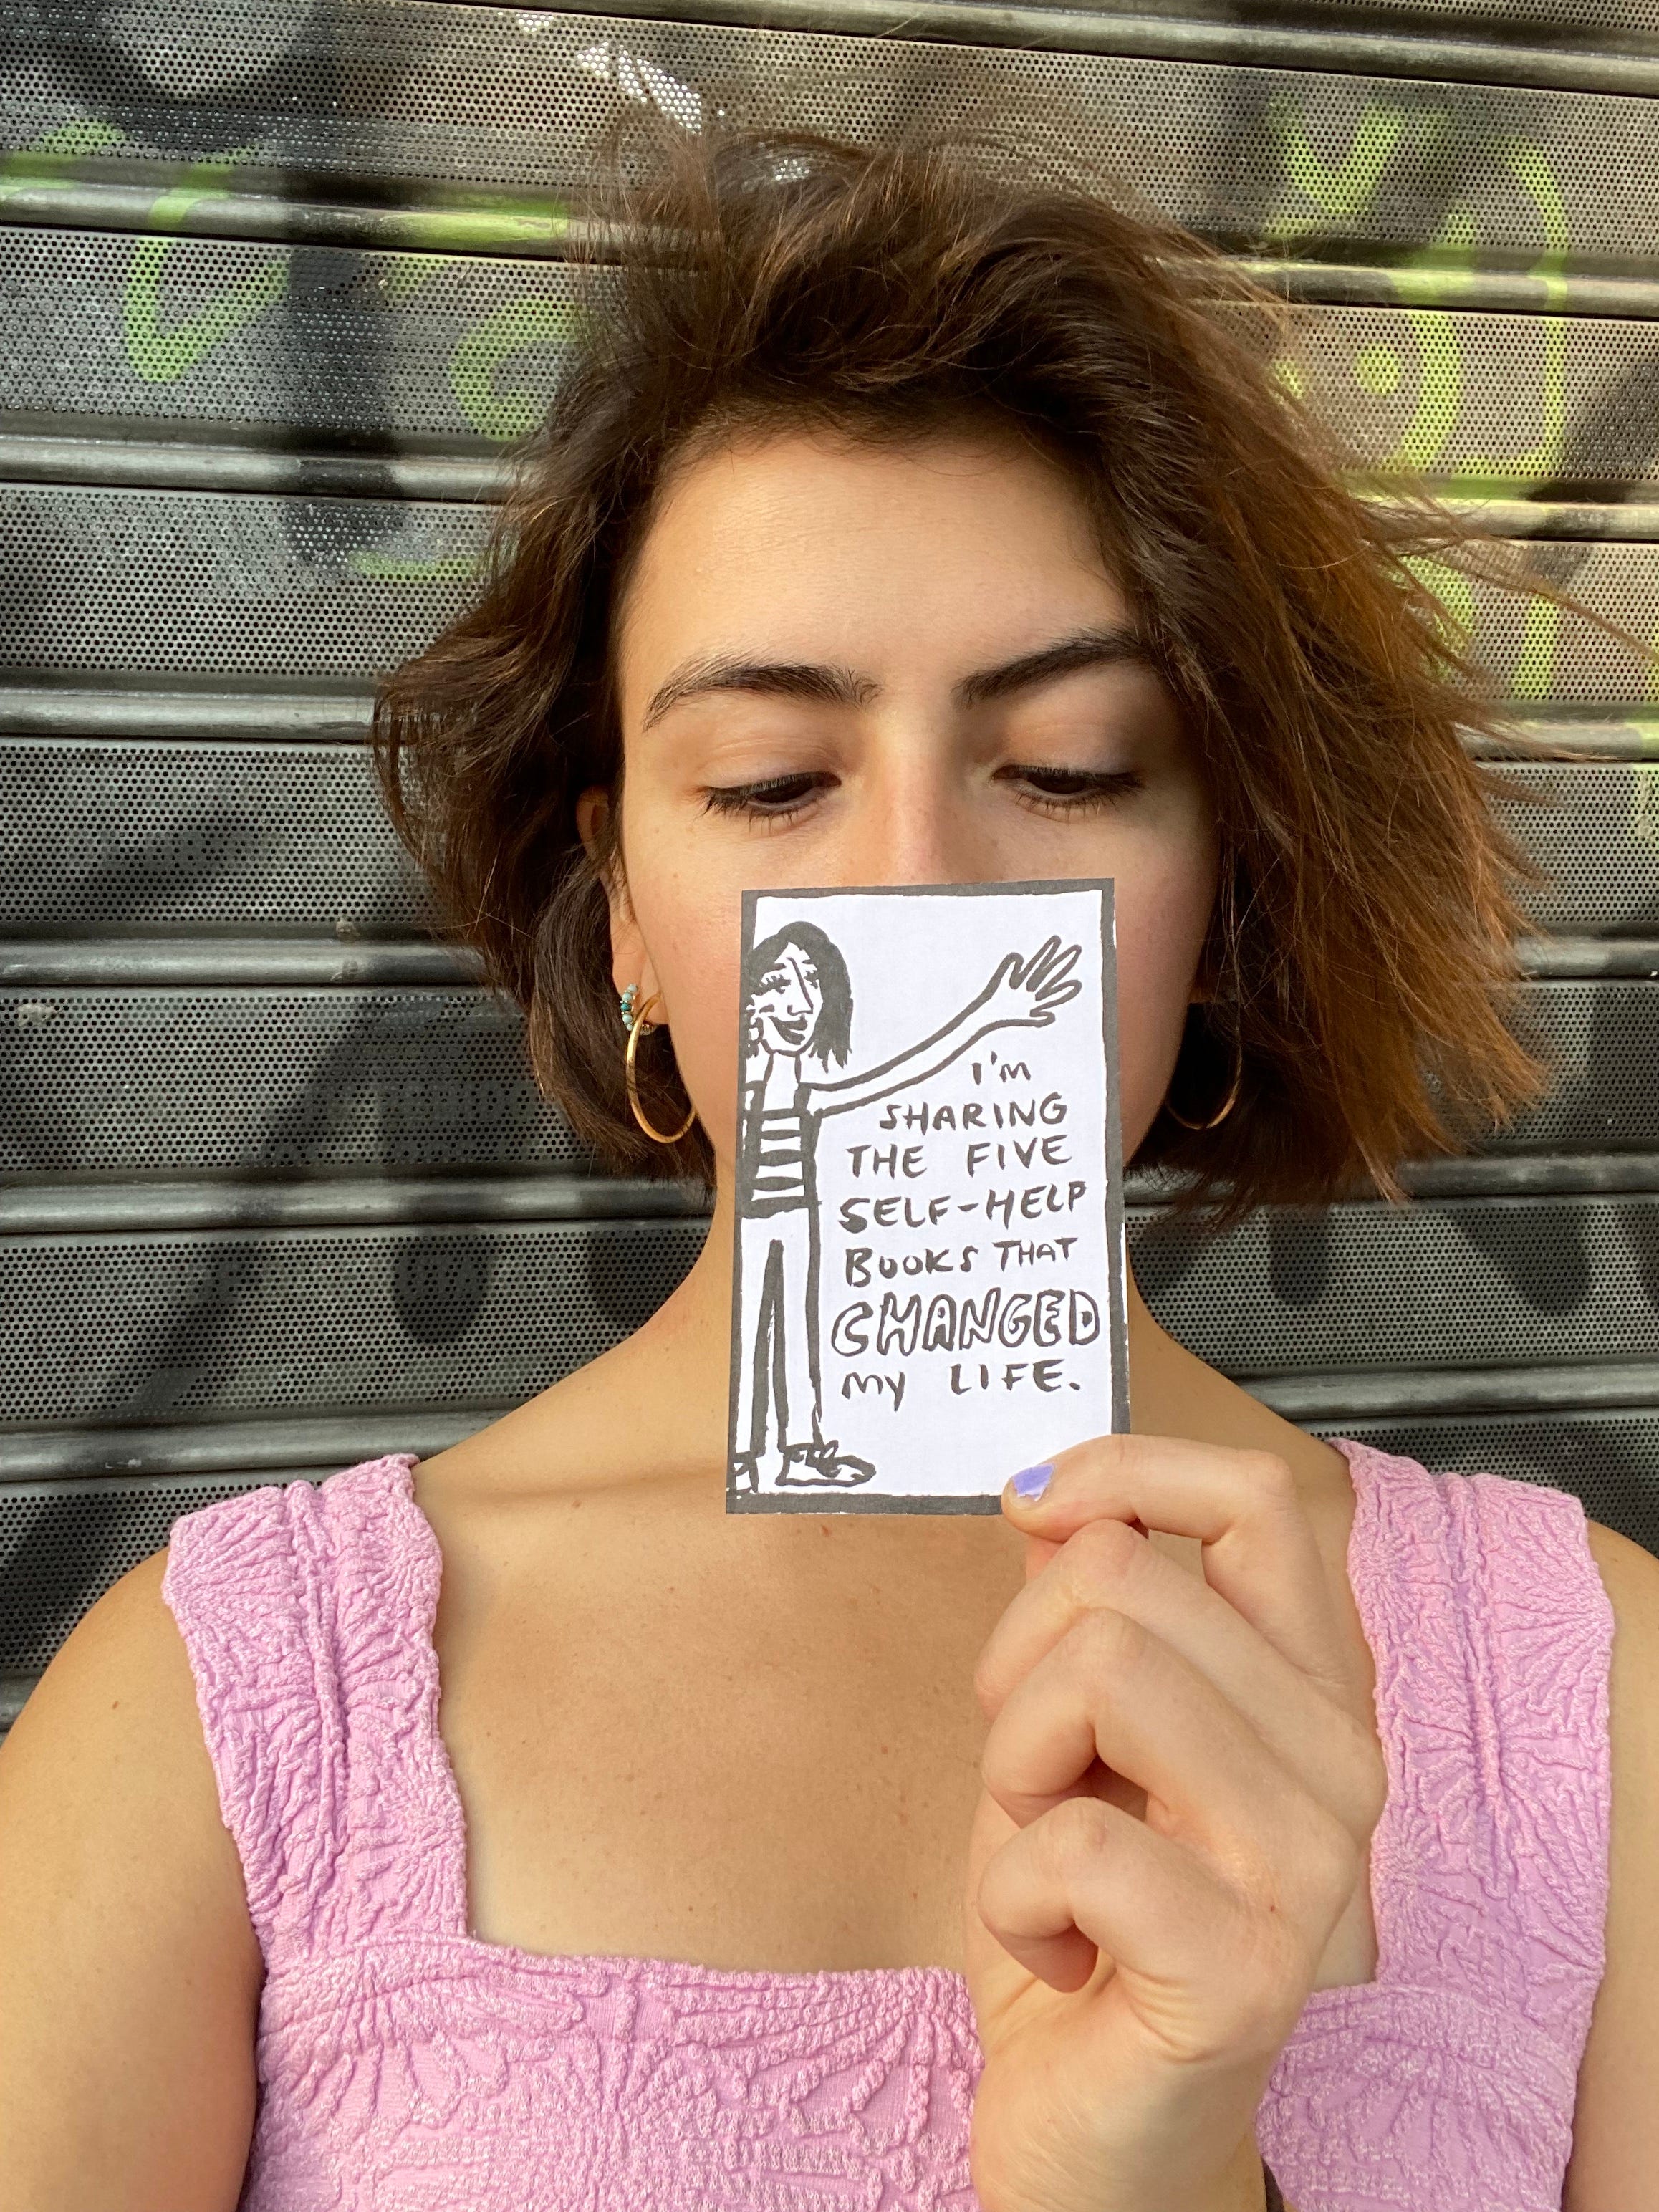 I'M
SHARING
THE FIVE
SELF-HELP
BOOKS THAT
CHANGED
MY LIFE.